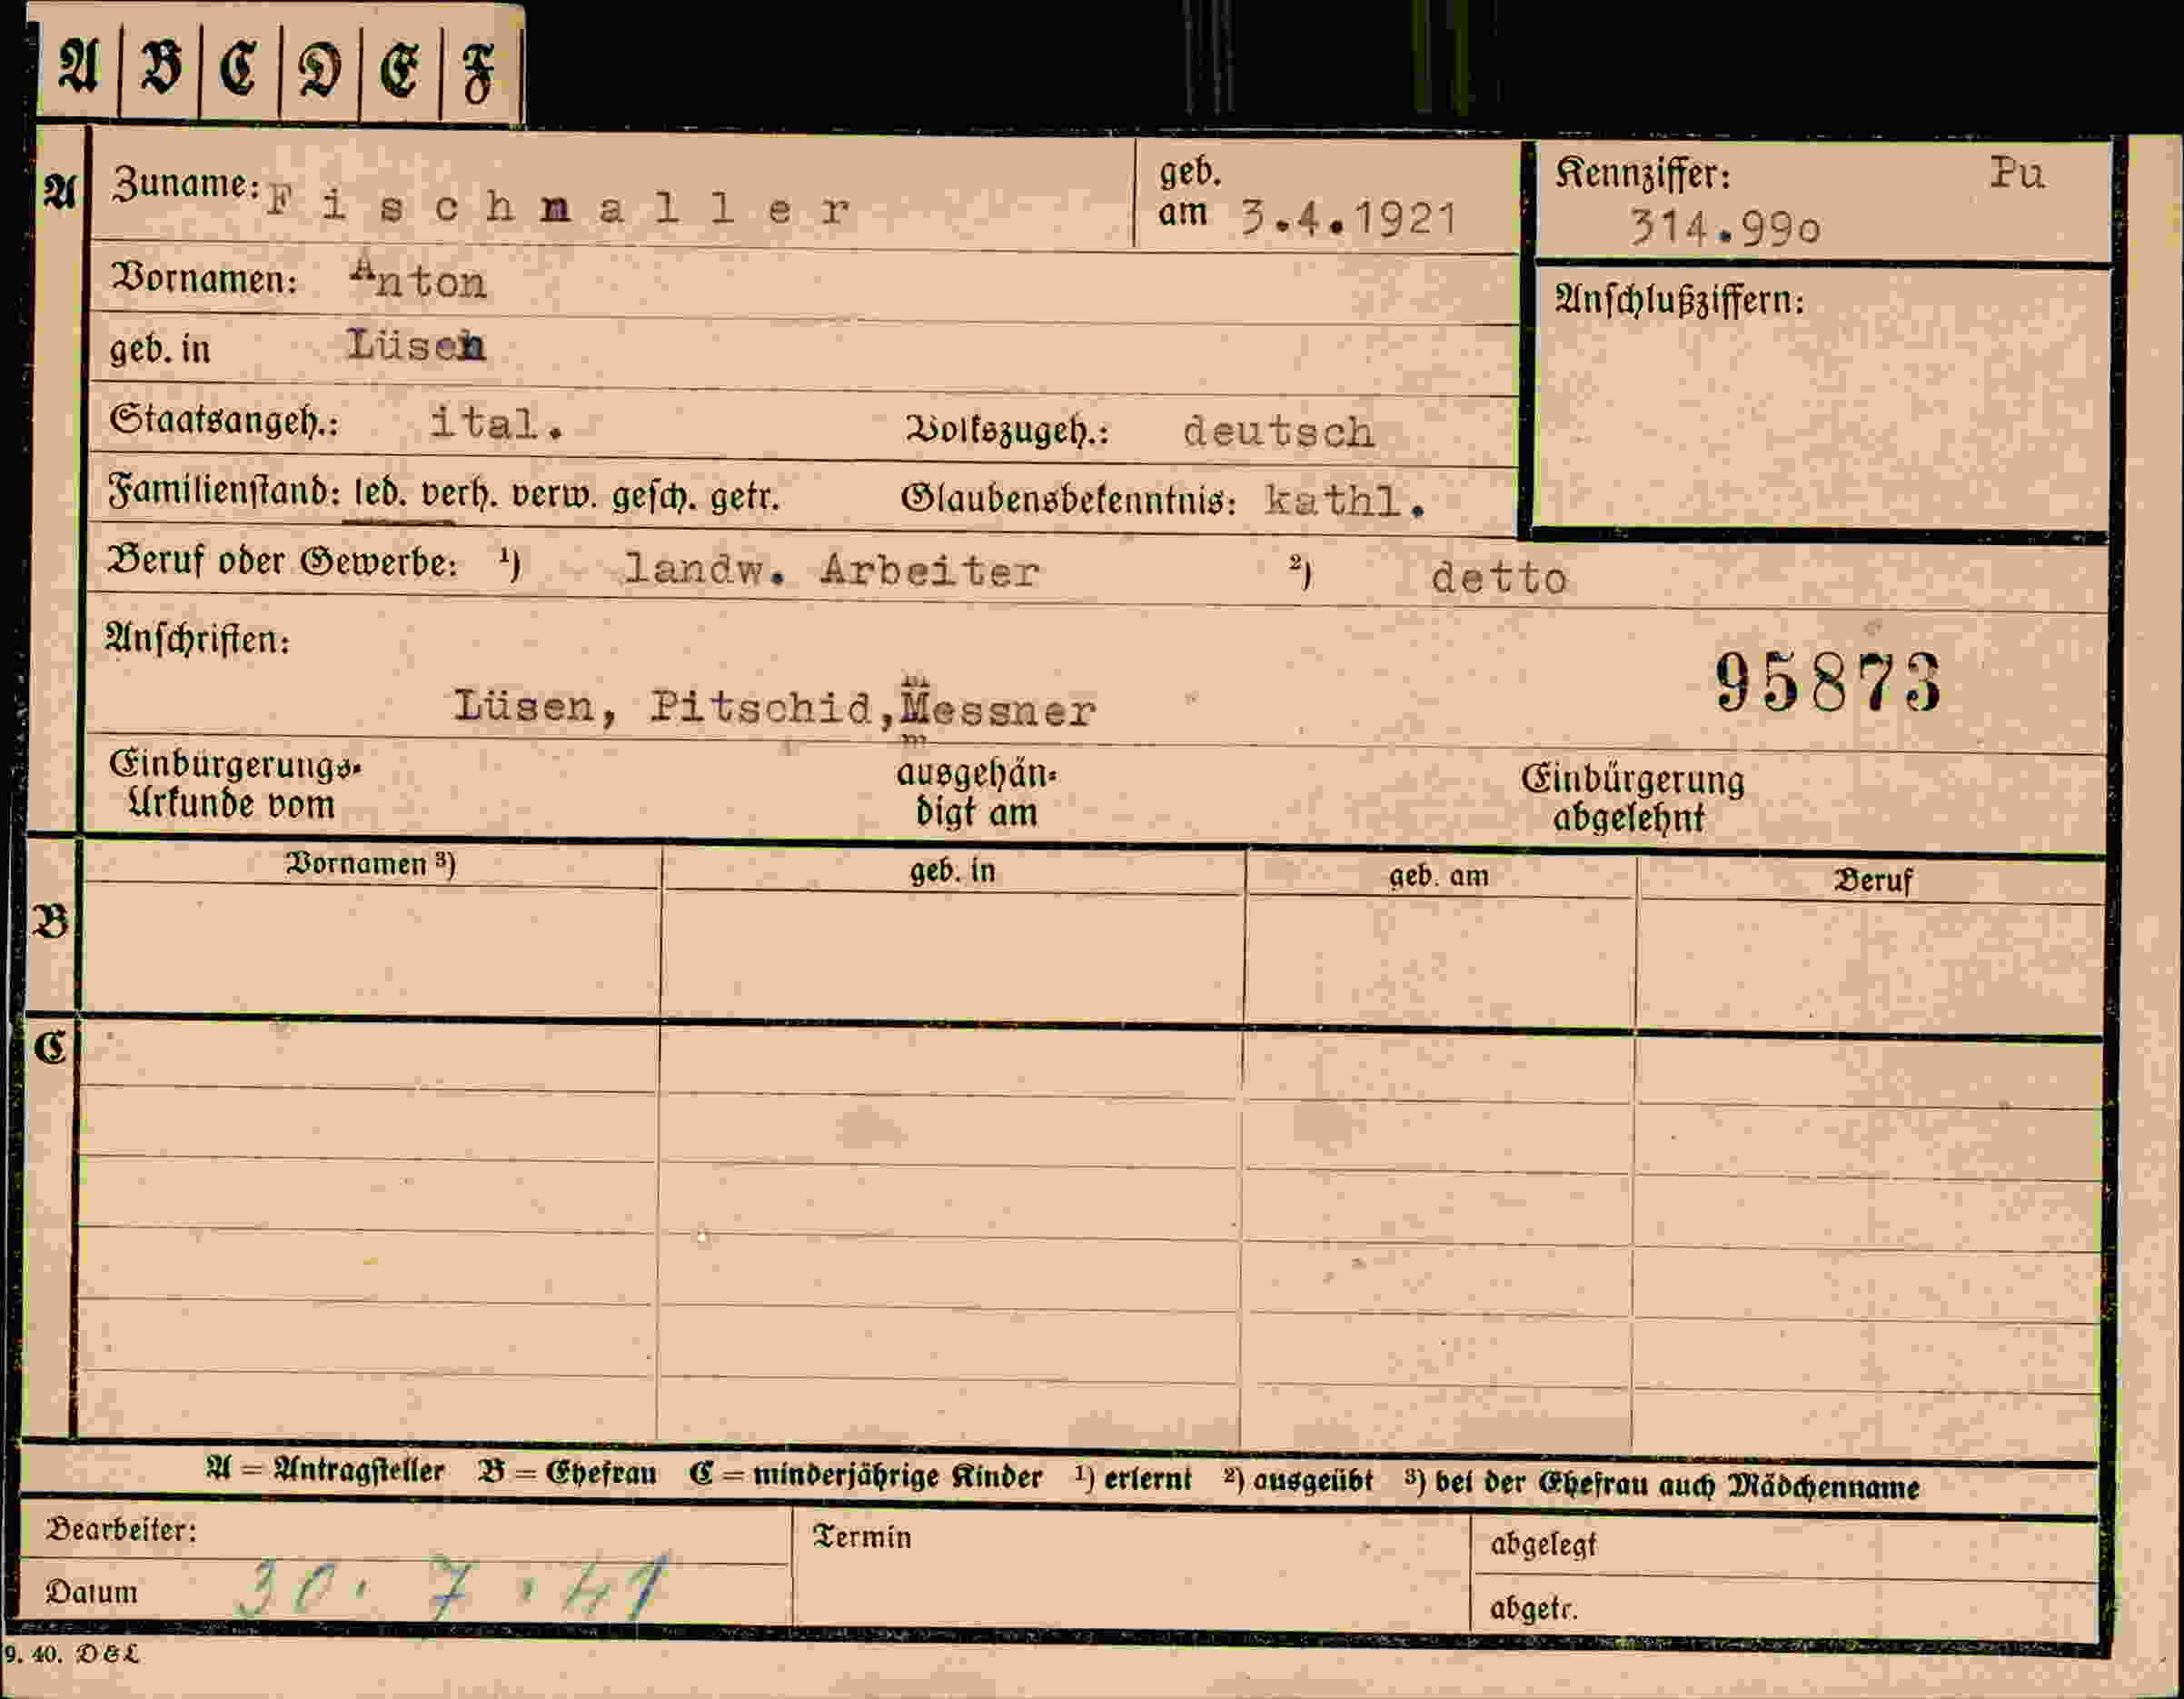 A B C D E F
A Zuname: Fischnaller geb. am 3.4.1921 Kennziffer: Pu 314.990
Vornamen: Anton Anschlußziffern:
geb. in Lüsen
Staatsangeh.: ital. Volkszugeh.: deutsch
Familienstand: led. verh. verw. gesch. getr. Glaubensbekenntnis: kathl.
Beruf oder Gewerbe: ¹) landw. Arbeiter ²) detto
Anschriften: 95873
Lüsen, Pitschid, Messner
Einbürgerungs- ausgehän- Einbürgerung
Urkunde vom digt am abgelehnt
Vornamen ³) geb. in geb. am Beruf
B
C
A = Antragsteller B = Ehefrau C = minderjährige Kinder ¹) erlernt ²) ausgeübt ³) bei der Ehefrau auch Mädchenname
Bearbeiter: Termin abgelegt
Datum 30. 7. 41 abgetr.
9. 40. D&L